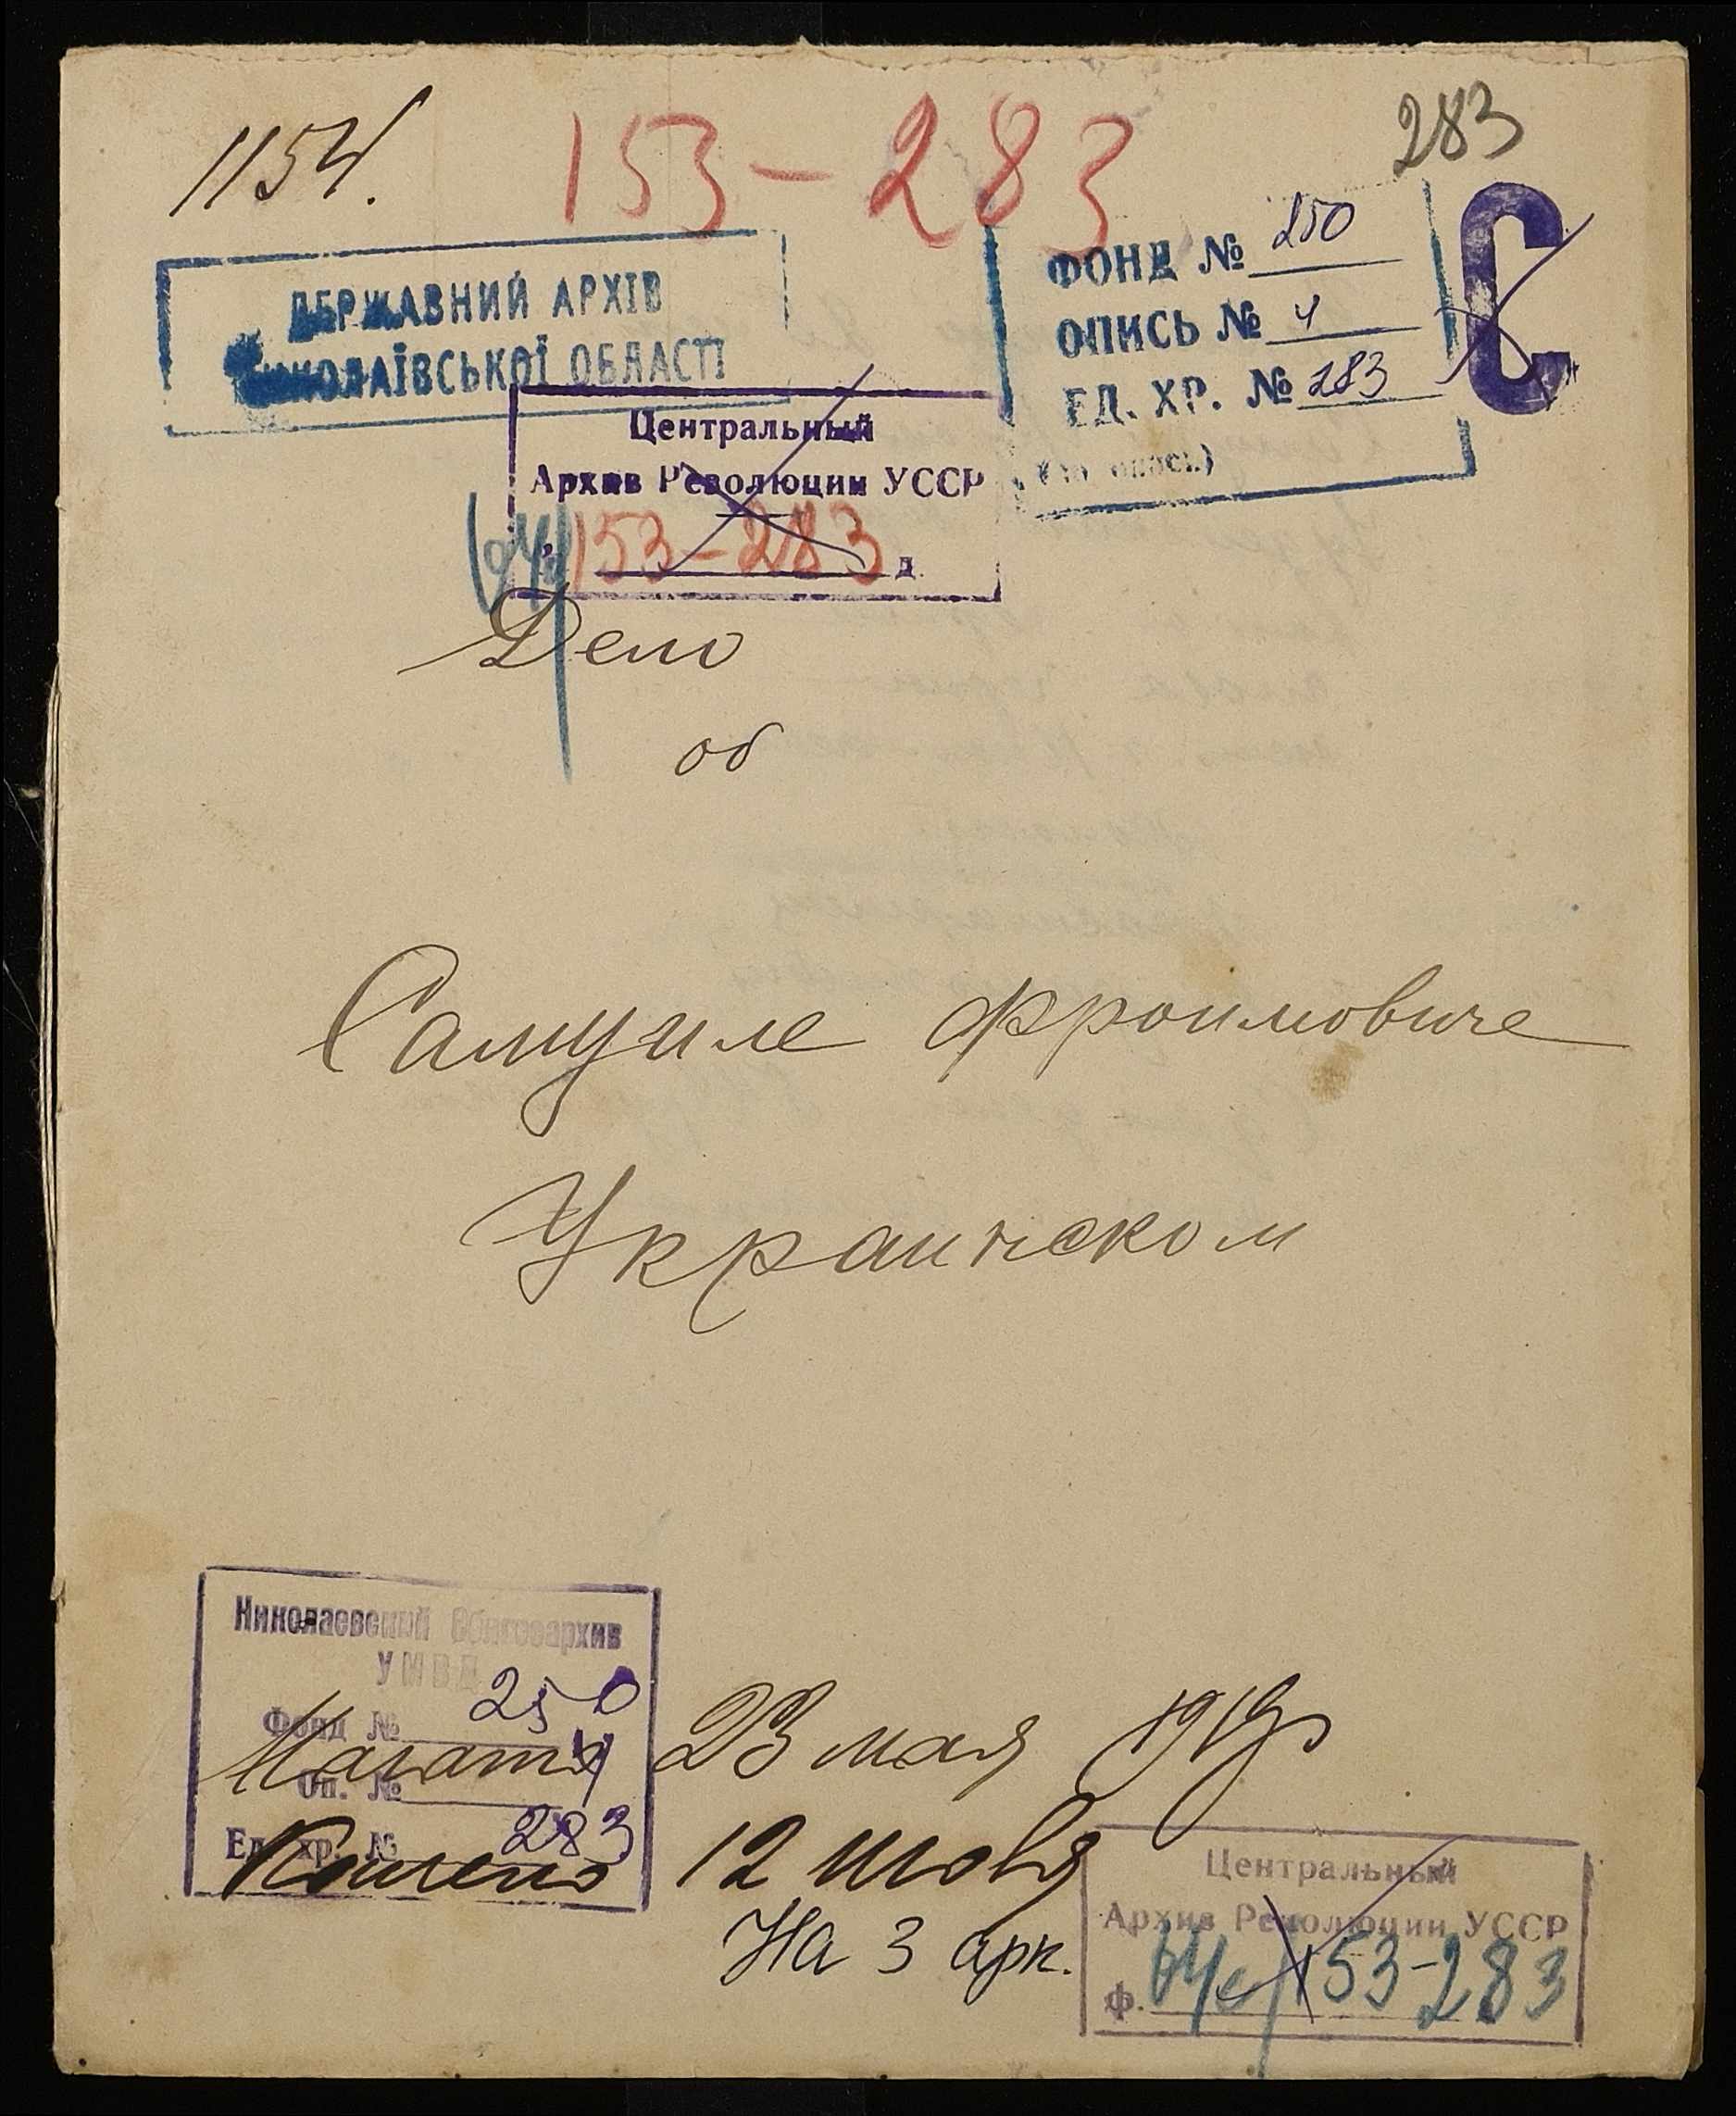 1154.
153-283
283
ДЕРЖАВНИЙ АРХІВ
МИКОЛАЇВСЬКОЇ ОБЛАСТІ
ФОНД № 250
ОПИСЬ № 4
ЕД. ХР. № 283
С
Центральный
Архив Революции УССР
153-283 д.
Дело
об
Самуиле Фроимовиче
Украинском
Николаевский Облгосархив
УМВД
Фонд № 250
Оп. № 4
Ед. хр. № 283
Начато 23 мая 1919 г.
Кончено 12 июля
На 3 арк.
Центральный
Архив Революции УССР
ф. 64с/153-283